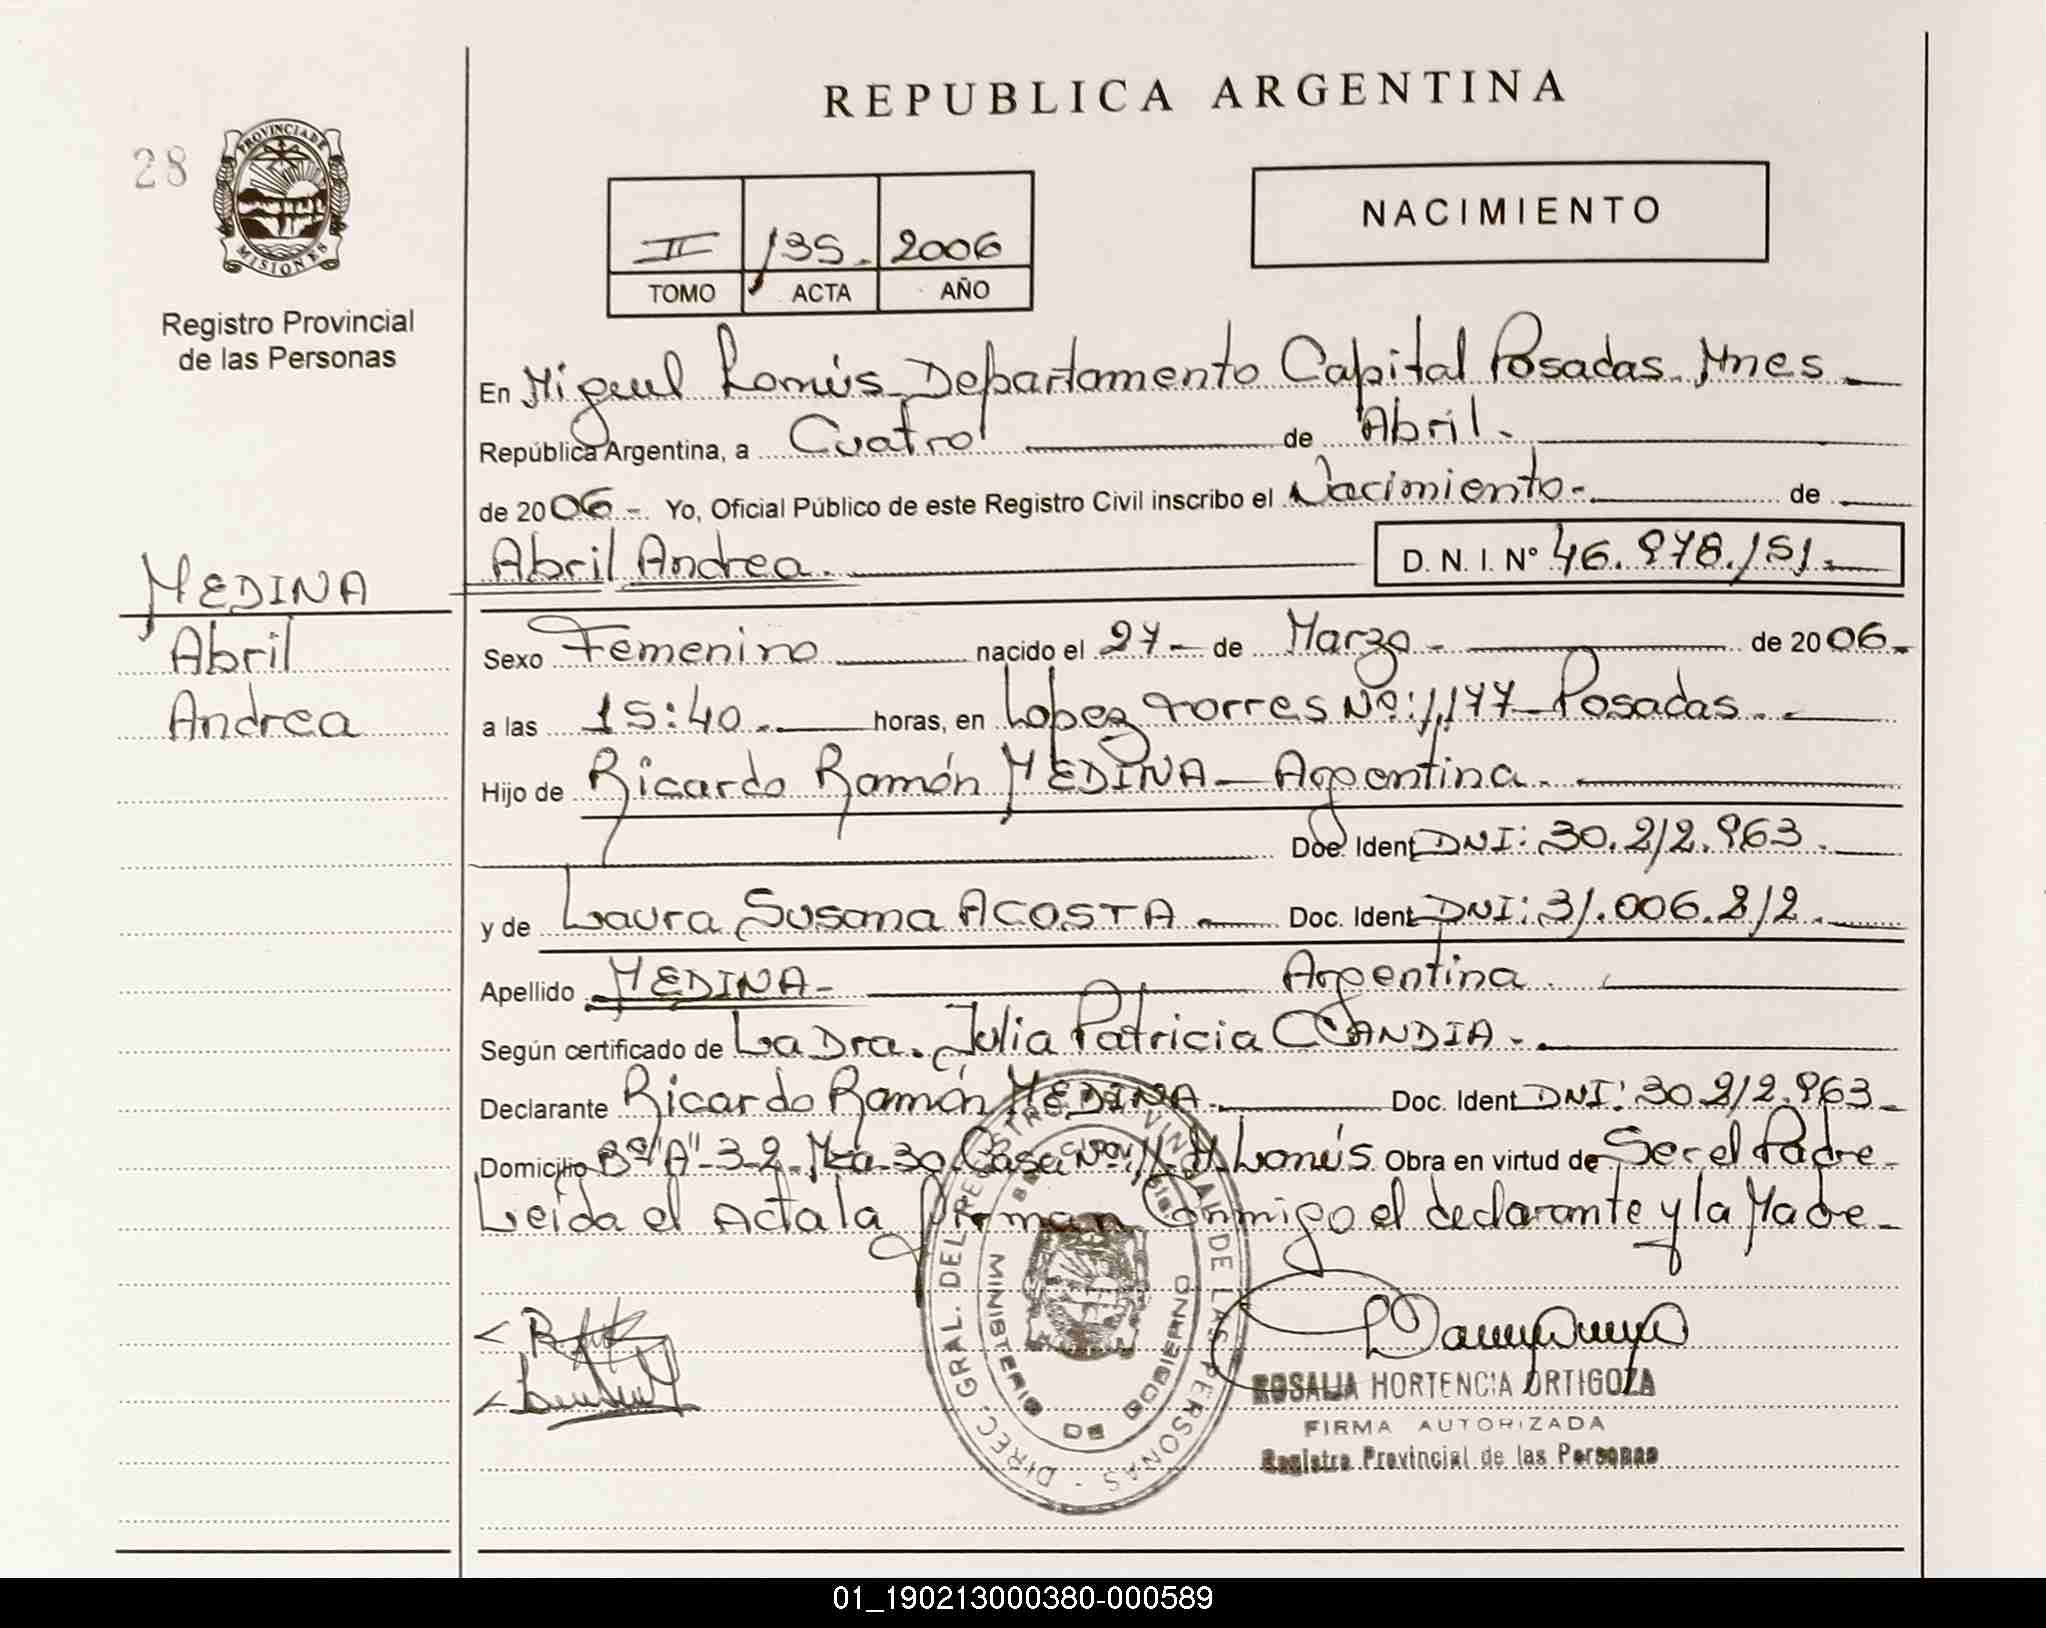 REPUBLICA ARGENTINA
28
PROVINCIA DE
MISIONES
Registro Provincial
de las Personas
II 135. 2006
TOMO ACTA AÑO
NACIMIENTO
En Miguel Lanús Departamento Capital Posadas. Mnes
República Argentina, a Cuatro de Abril.
de 2006- Yo, Oficial Público de este Registro Civil inscribo el Nacimiento- de
Abril Andrea. D. N. I. Nº 46.978.151.
MEDINA
Abril
Andrea
Sexo Femenino nacido el 27- de Marzo- de 2006-
a las 15:40.- horas, en Lopez Torres Nº:1.177-Posadas.-
Hijo de Ricardo Ramón MEDINA-Argentina.
Doc. Ident DNI: 30.212.963.
y de Laura Susana ACOSTA Doc. Ident DNI: 31.006.212.
Apellido MEDINA- Argentina.
Según certificado de La Dra. Julia Patricia CANDIA.-
Declarante Ricardo Ramón MEDINA. Doc. Ident DNI: 30.212.963-
Domicilio Bº"A"-3-2-Mza-30 Casa Nº M. Lanús. Obra en virtud de Ser el Padre-
Leida el Acta la firman Conmigo el declarante y la Madre-
DIREC. GRAL. DEL REGISTRO PROVINCIAL DE LAS PERSONAS -
MINISTERIO DE GOBIERNO
ROSALIA HORTENCIA ORTIGOZA
FIRMA AUTORIZADA
Registro Provincial de las Personas
01_190213000380-000589